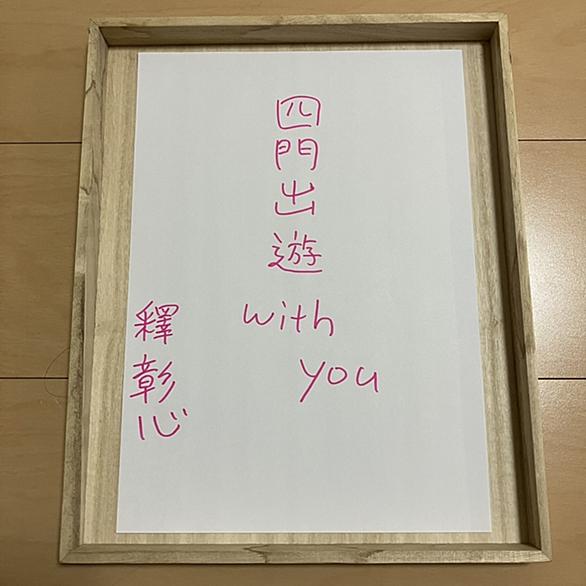 四門出遊
with
you
釋彰心